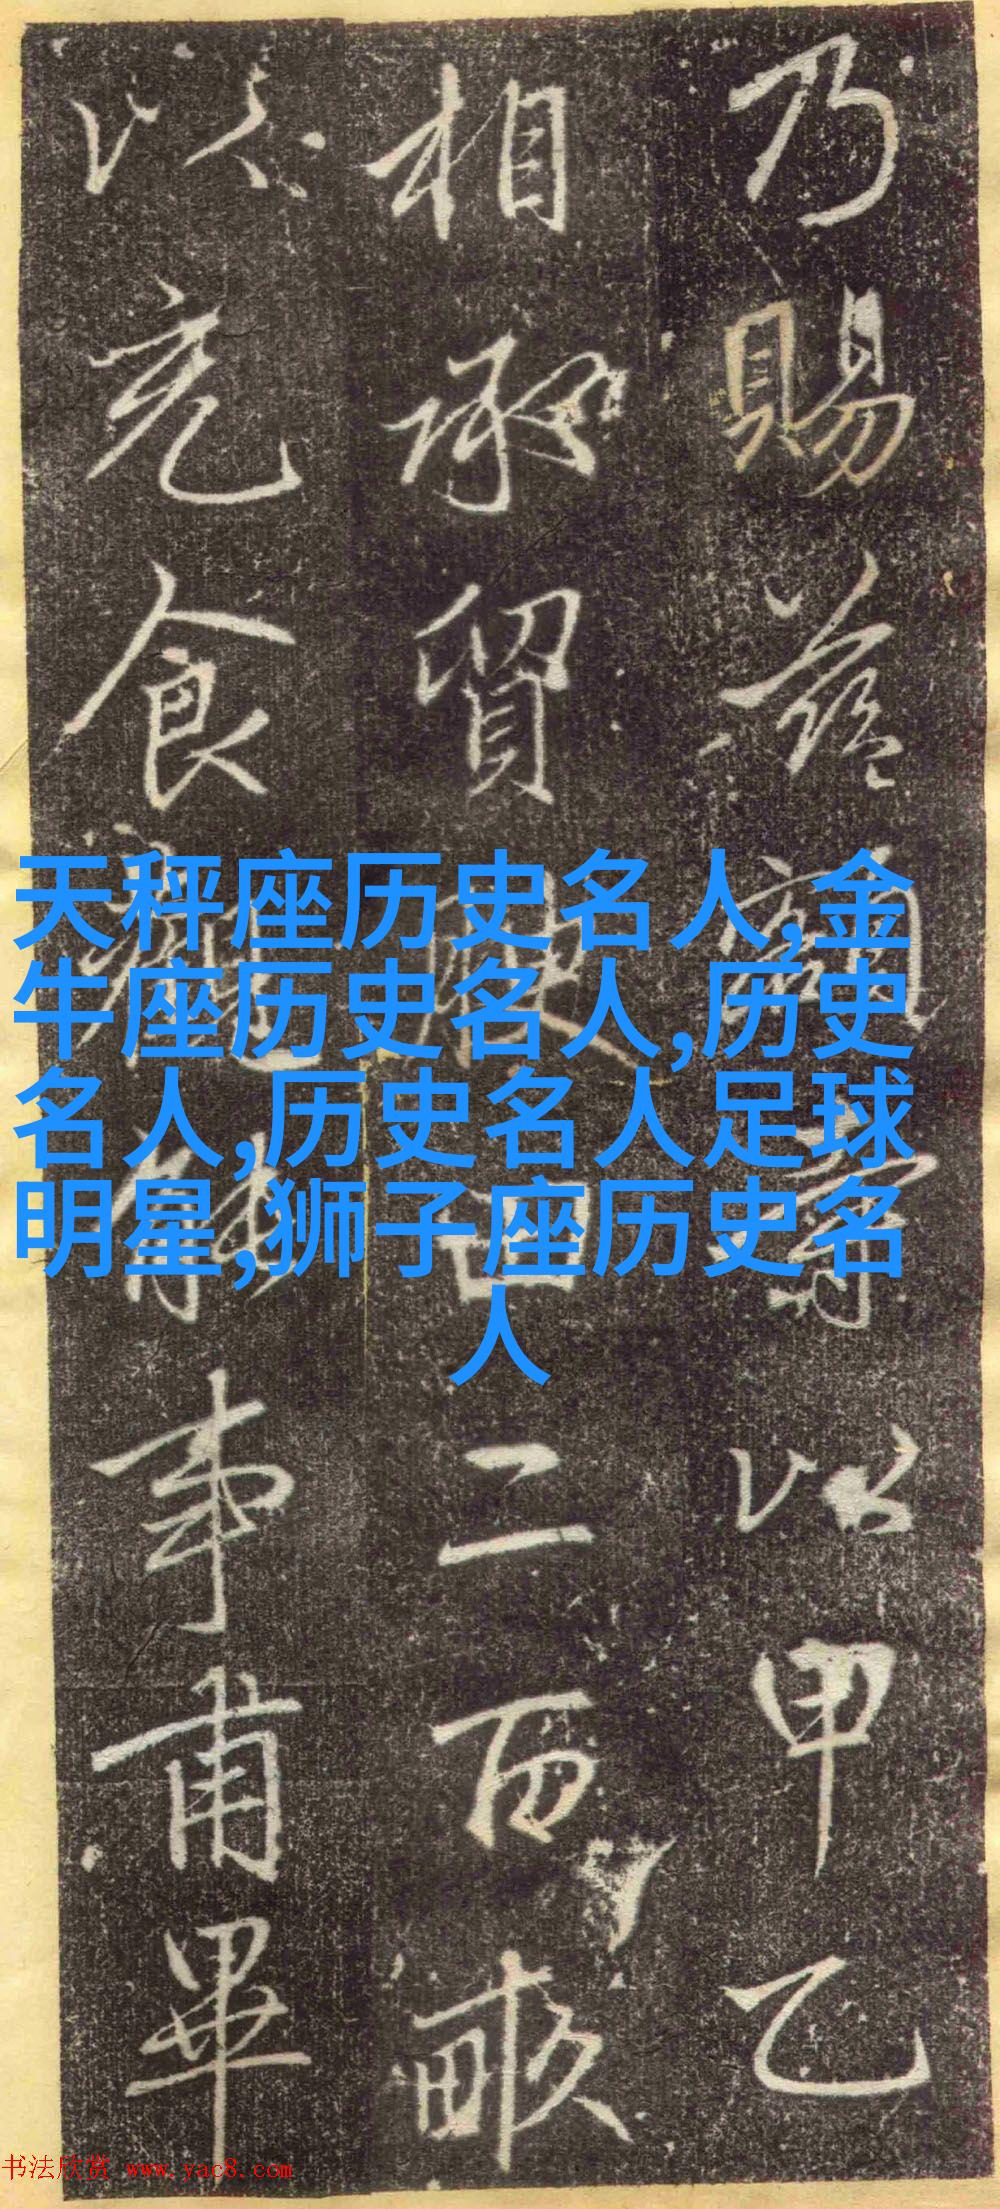 乃賜額以甲乙
相承貿田二百畝
以充食事甫畢
天秤座历史名人,金
牛座历史名人,历史
名人,历史名人足球
明星,狮子座历史名
人
书法欣赏 www.yac8.com